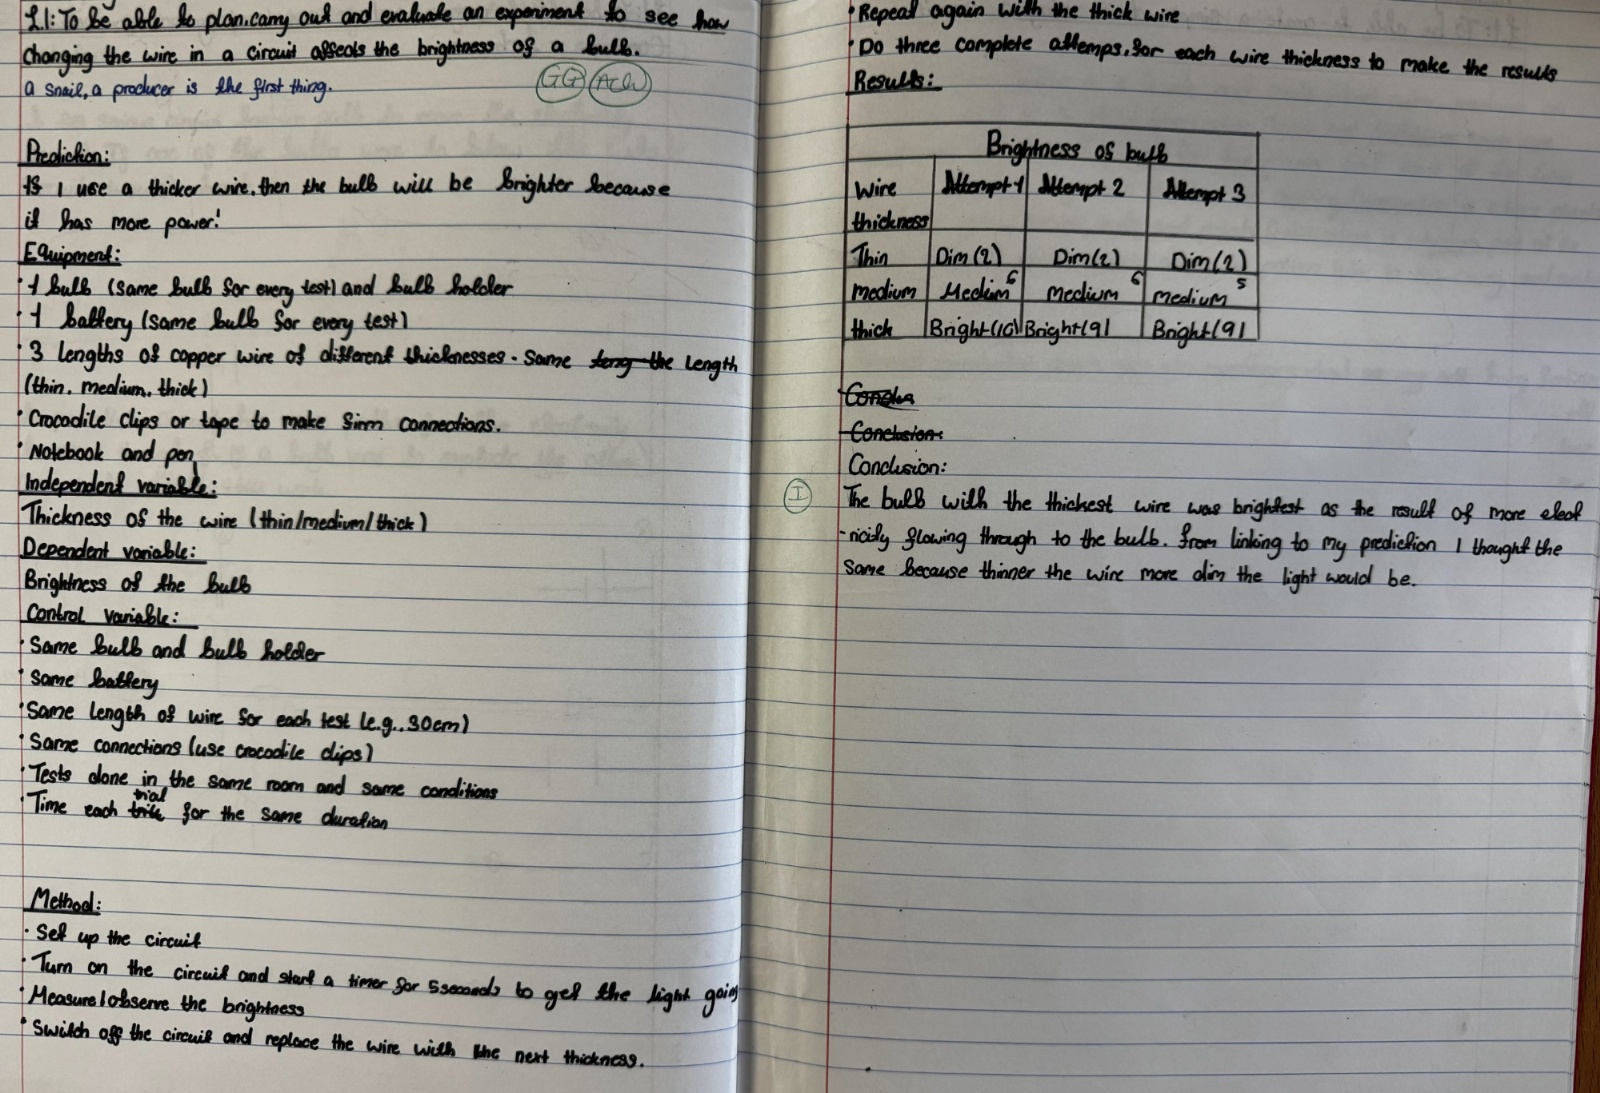 L.I: To be able to plan, carry out and evaluate an experiment to see how
changing the wire in a circuit affects the brightness of a bulb.
a snail, a producer is the first thing.
GG ACW
Prediction:
If I use a thicker wire, then the bulb will be brighter because
it has more power!
Equipment:
· 1 bulb (same bulb for every test) and bulb holder
· 1 battery (same bulb for every test)
· 3 lengths of copper wire of different thicknesses. Same leng the length
(thin, medium, thick)
· Crocodile clips or tape to make firm connections.
· Notebook and pen
Independent variable:
Thickness of the wire (thin/medium/thick)
Dependent variable:
Brightness of the bulb
Control variable:
· Same bulb and bulb holder
· Same battery
· Same length of wire for each test (e.g., 30cm)
· Same connections (use crocodile clips)
· Tests done in the same room and same conditions
· Time each trial for the same duration
Method:
· Set up the circuit
· Turn on the circuit and start a timer for 5 seconds to get the light going
· Measure/observe the brightness
· Switch off the circuit and replace the wire with the next thickness.
· Repeat again with the thick wire
· Do three complete attemps, for each wire thickness to make the results
Results:
Brightness of bulb
Wire thickness Attempt 1 Attempt 2 Attempt 3
Thin Dim (2) Dim(2) Dim(2)
medium Medium 6 medium 6 medium 5
thick Bright(10) Bright(9) Bright(9)
Conclus
Conclusion:
Conclusion:
I
The bulb with the thickest wire was brightest as the result of more elect
-ricity flowing through to the bulb. From linking to my prediction I thought the
same because thinner the wire more dim the light would be.